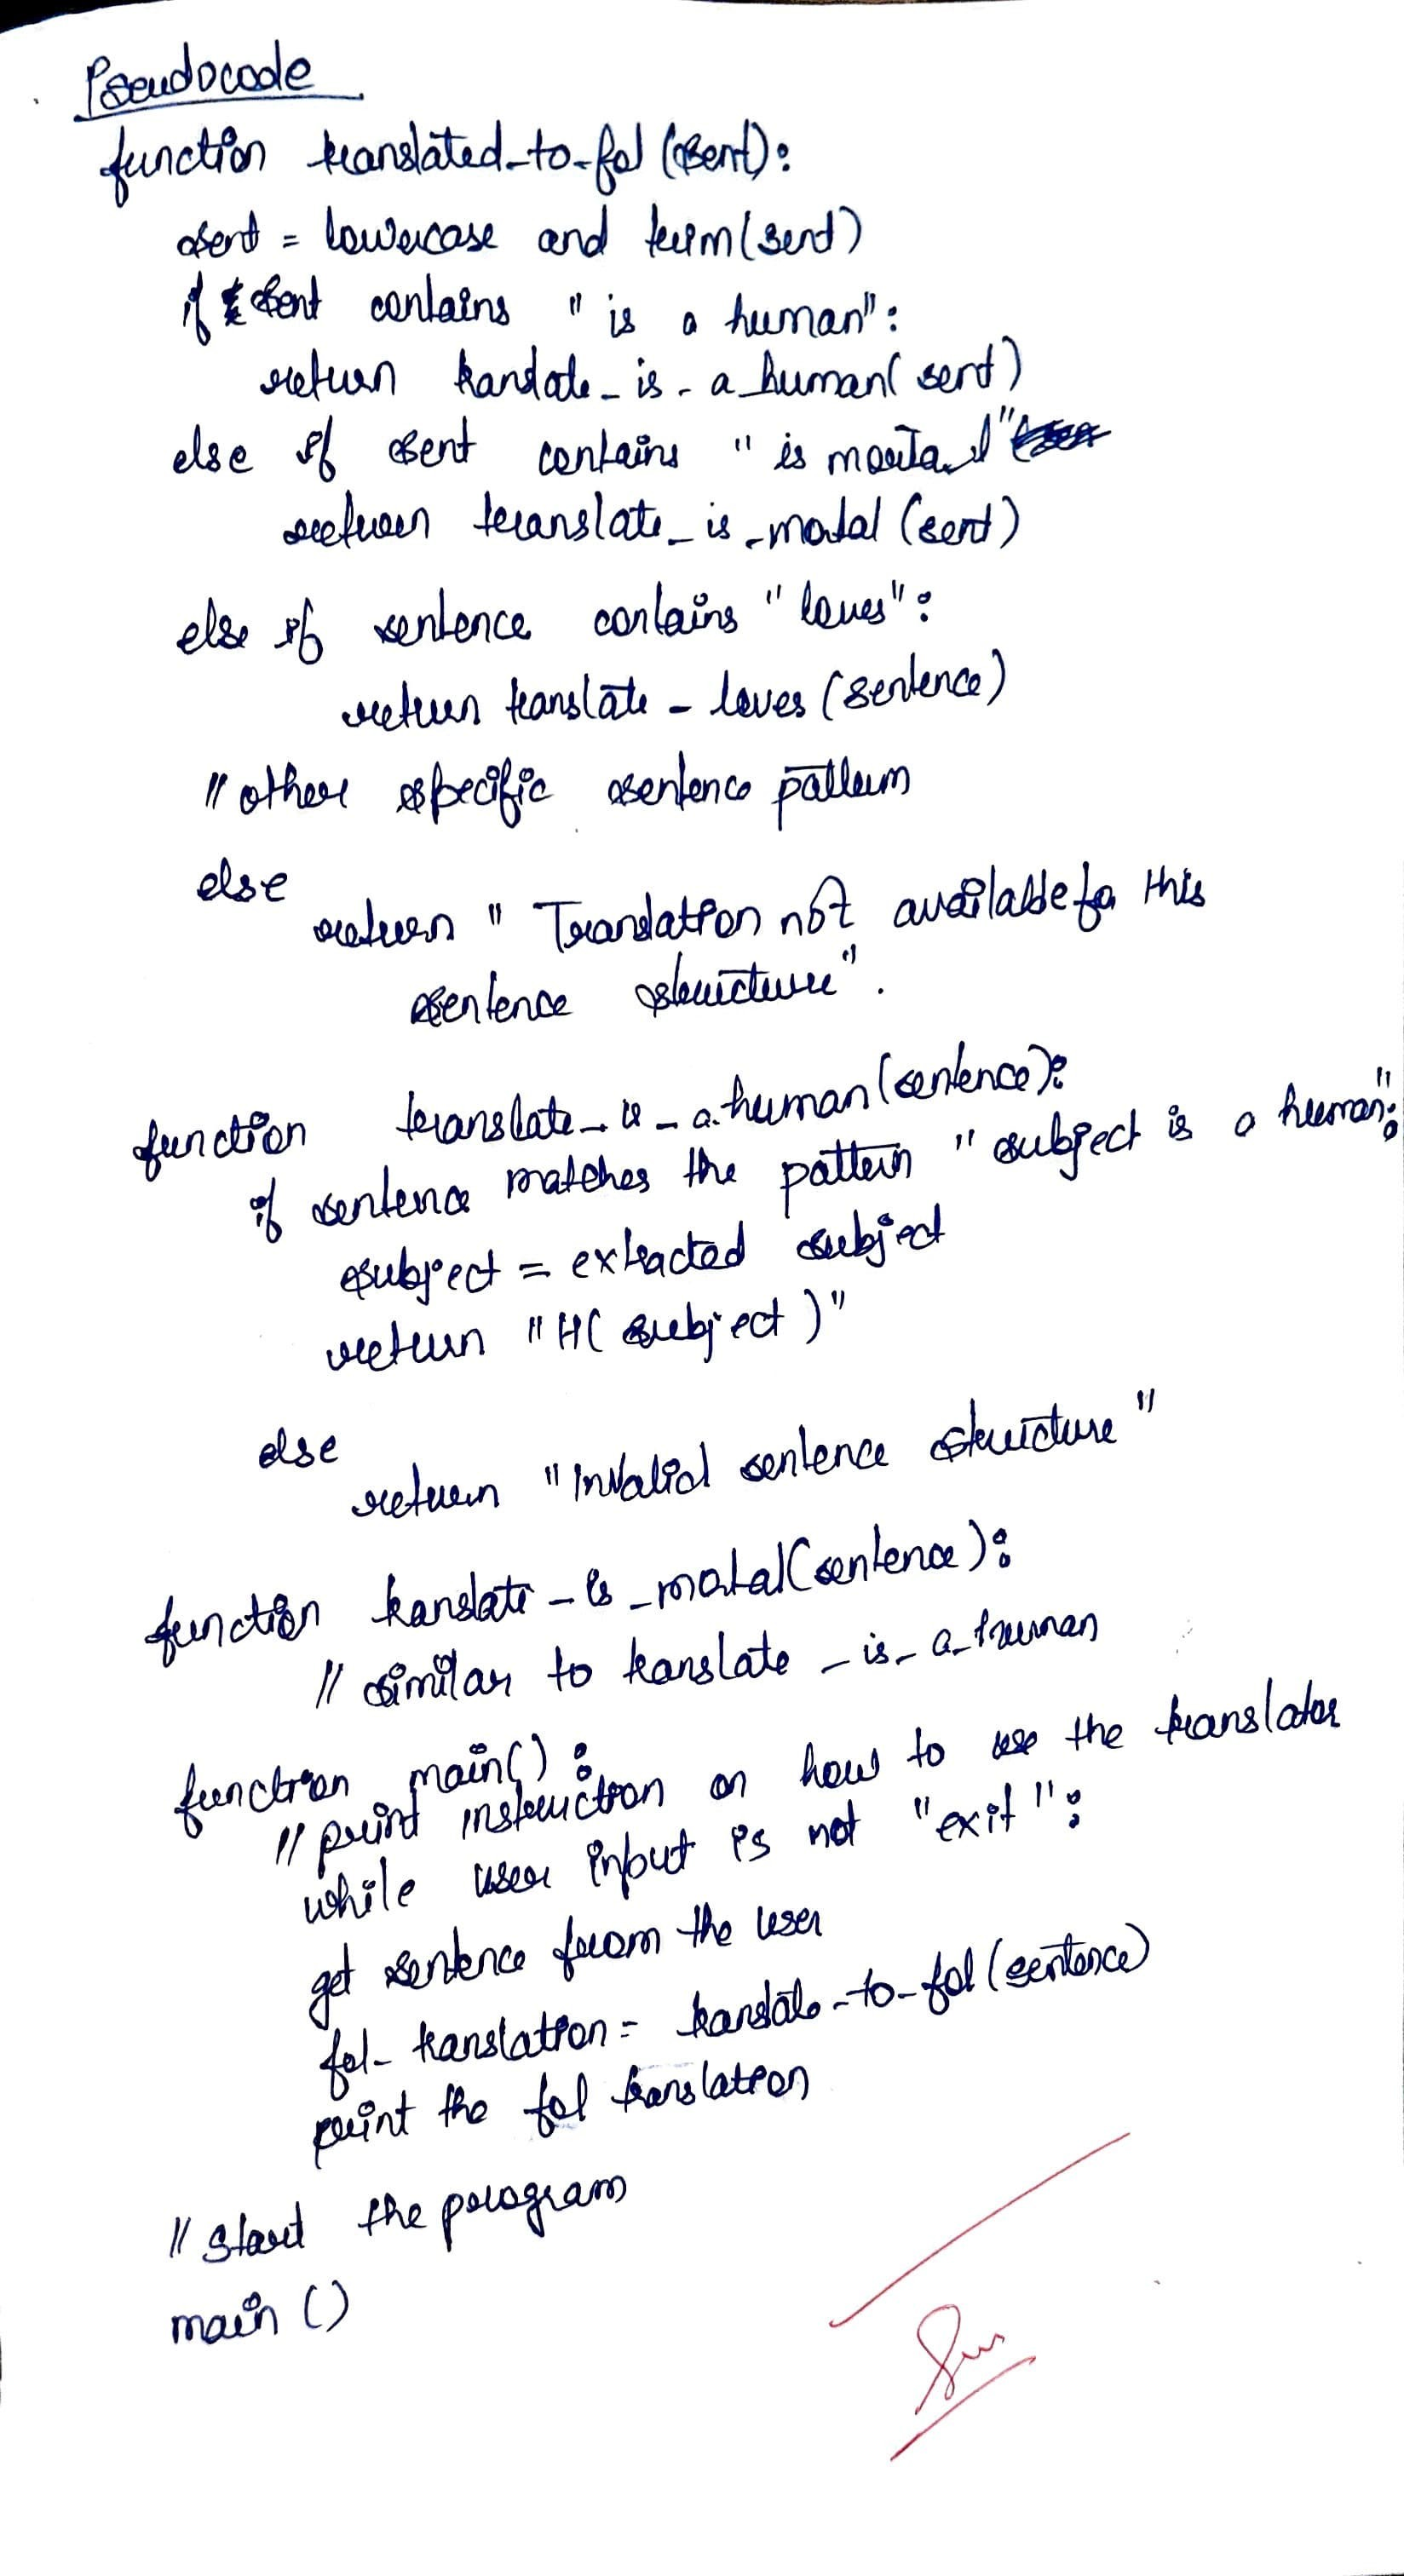 Pseudocode
function translated_to_fol (sent):
sent = lowercase and trim (sent)
if sent contains " is a human":
return translate_is_a_human( sent)
else if sent contains " is mortal"
return translate_is_mortal (sent)
else if sentence contains " loves":
return translate_loves (sentence)
// other specific sentence pattern
else
return " Translation not available for this
sentence structure".
function translate_is_a_human (sentence):
if sentence matches the pattern " subject is a human":
subject = extracted subject
return "H( subject )"
else
return "Invalid sentence structure "
function translate_is_mortal (sentence):
// similar to translate_is_a_human
function main() :
// print instruction on how to use the translator
while user input is not "exit ":
get sentence from the user
fol_translation = translate_to_fol (sentence)
print the fol translation
// Start the program
main ()